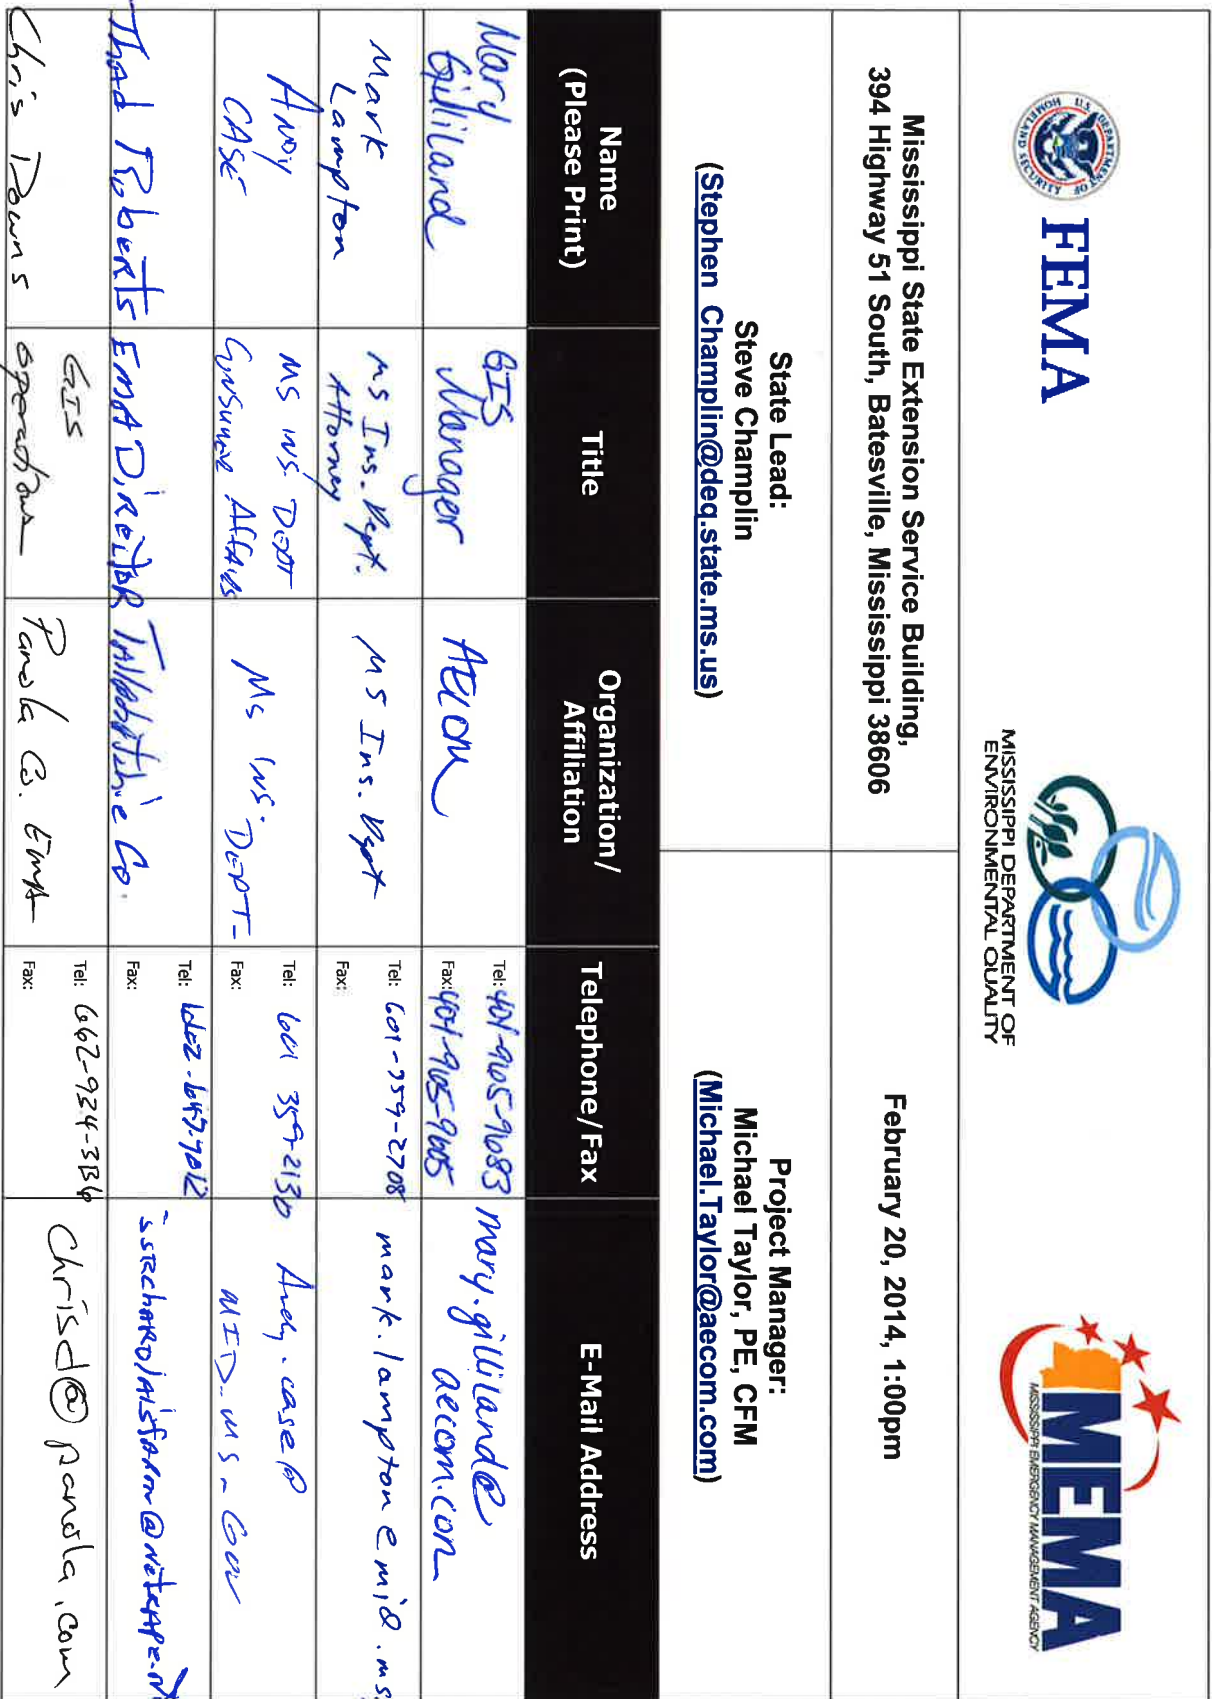 U.S. DEPARTMENT OF HOMELAND SECURITY
FEMA
MISSISSIPPI DEPARTMENT OF
ENVIRONMENTAL QUALITY
MEMA
MISSISSIPPI EMERGENCY MANAGEMENT AGENCY
Mississippi State Extension Service Building,
394 Highway 51 South, Batesville, Mississippi 38606
February 20, 2014, 1:00pm
State Lead:
Steve Champlin
(Stephen_Champlin@deq.state.ms.us)
Project Manager:
Michael Taylor, PE, CFM
(Michael.Taylor@aecom.com)
Name
(Please Print)
Title
Organization/
Affiliation
Telephone/Fax
E-Mail Address
Mary
Gilliland
GIS
Manager
AECOM
Tel: 404-965-9683
Fax: 404-965-9605
mary.gilliland@
aecom.com
Mark
Lampton
MS Ins. Dept.
Attorney
MS Ins. Dept
Tel: 601-359-2708
Fax:
mark.lampton@mid.ms.
Andy
CASE
MS INS. DEPT
Consumer Affairs
MS INS. DEPT-
Tel: 601 359-2130
Fax:
Andy.case@
MID.MS.Gov
Thad Roberts
EMA DIRECTOR
Tallahatchie Co.
Tel: 662-647-7012
Fax:
Chris Downs
GIS
operations
Panola Co. EMA
Tel: 662-934-3136
Fax:
Chrisd@panola.com